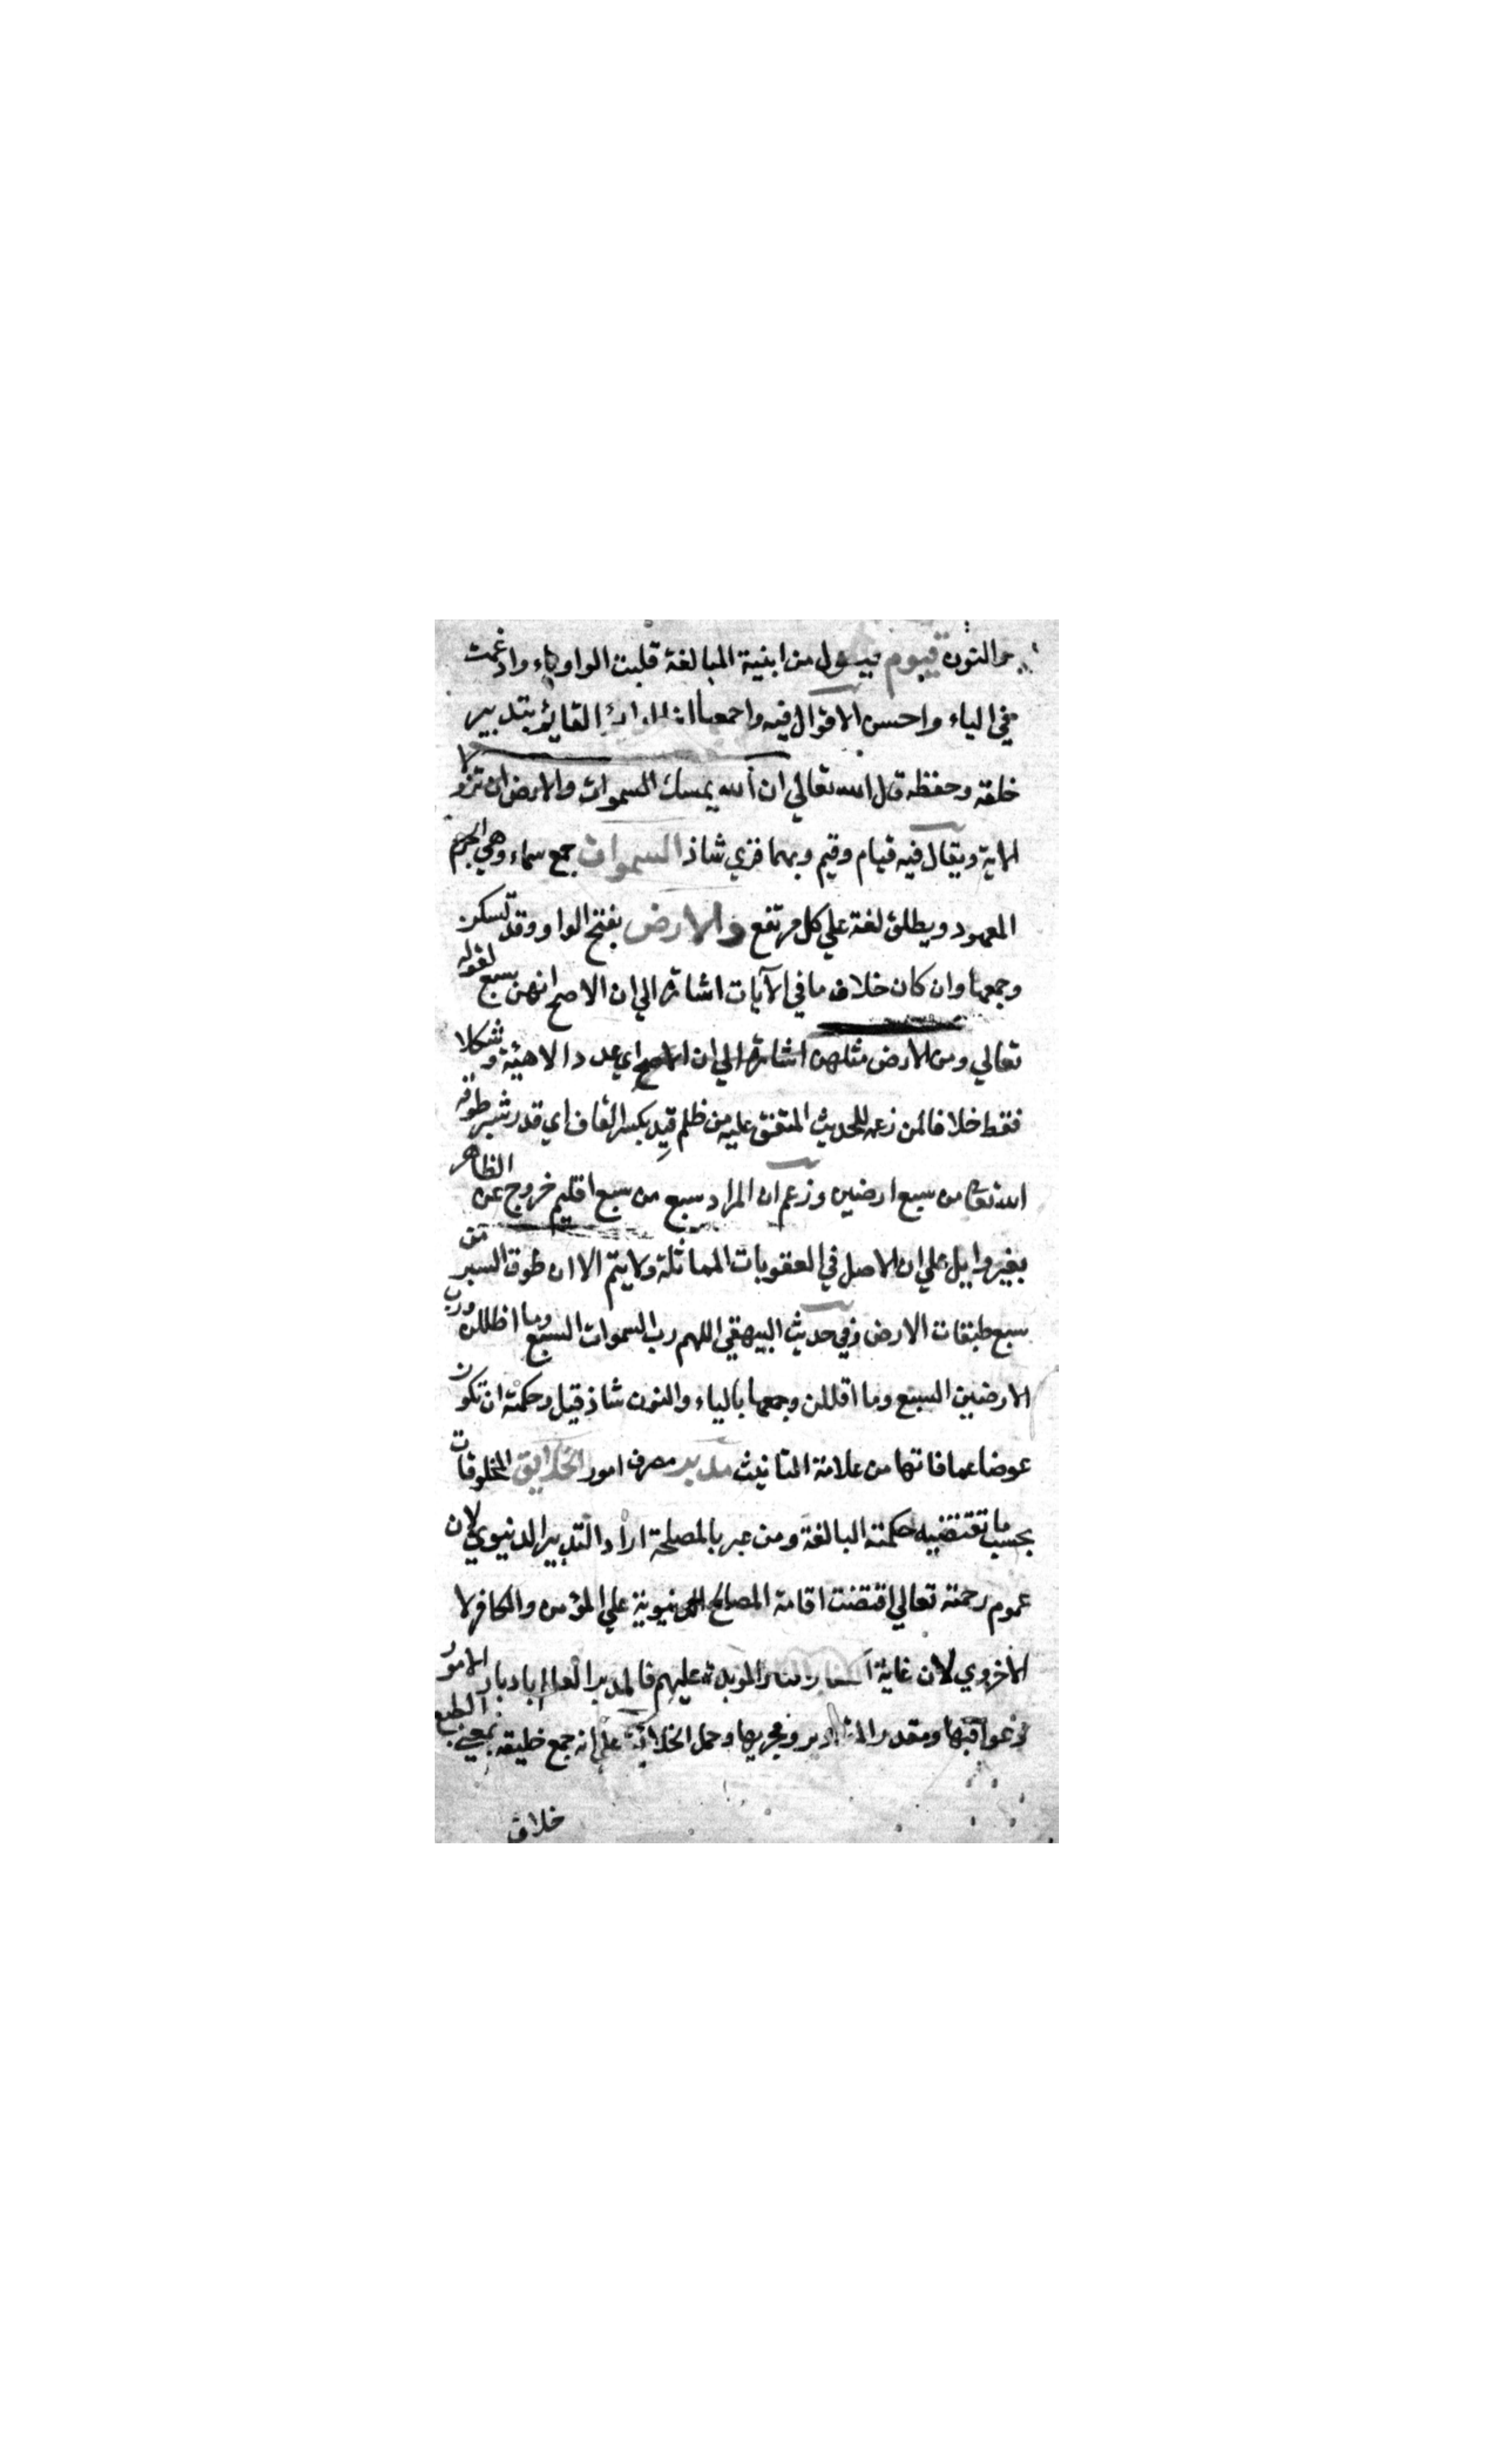 والنون قيوم فيعول من ابنية المبالغة قلبت الواو ياء وادغمت
في الياء واحسن الاقوال فيه واجمعها انه الدائم القايم بتدبير
خلقه وحفظه قال الله تعالي ان الله يمسك السموات والارض ان تزولا
الاية ويقال فيه قيام وقيم وبهما قري شاذ السموات جمع سماء وهي الجرم
المعهود ويطلق لغة علي كل مرتفع والارض بفتح الواو وقد تسكن
وجمعها وان كان خلاف ما في الآيات اشارة الي ان الاصح انهن سبع لقوله
تعالي ومن الارض مثلهن اشارة الي ان الاصح اي عددا لا هيئة وشكلا
فقط خلافا لمن زعمه للحديث المتفق عليه من ظلم قيد بكسر القاف اي قدر شبر طوقه
الله تعا من سبع ارضين وزعم ان المراد سبع من سبع اقليم خروج عن الظاهر
بغير دليل علي ان الاصل في العقوبات المماثلة ولا يتم الا ان طوق الشبر من
سبع طبقات الارض وفي حديث البيهقي اللهم رب السموات السبع وما اظللن ورب
الارضين السبع وما اقللن وجمعها بالياء والنون شاذ قيل وحكمته ان تكون
عوضا عما فاتها من علامة التانيث مدبر مصرف امور الخلايق المخلوقات
بحسب ما تقتضيه حكمته البالغة ومن عبر بالمصلحة اراد التدبير الدنيوي لان
عموم رحمته تعالي اقتضت اقامة المصالح الدنيوية علي المؤمن والكافر لا
الاخروي لان غاية الموبدة عليهم فالمدبر العالم بادبار الامور
وعواقبها ومقدر المقادير ومجريها وحمل الخلائق علي انه جمع خليقه بمعني الطبع
خلاف